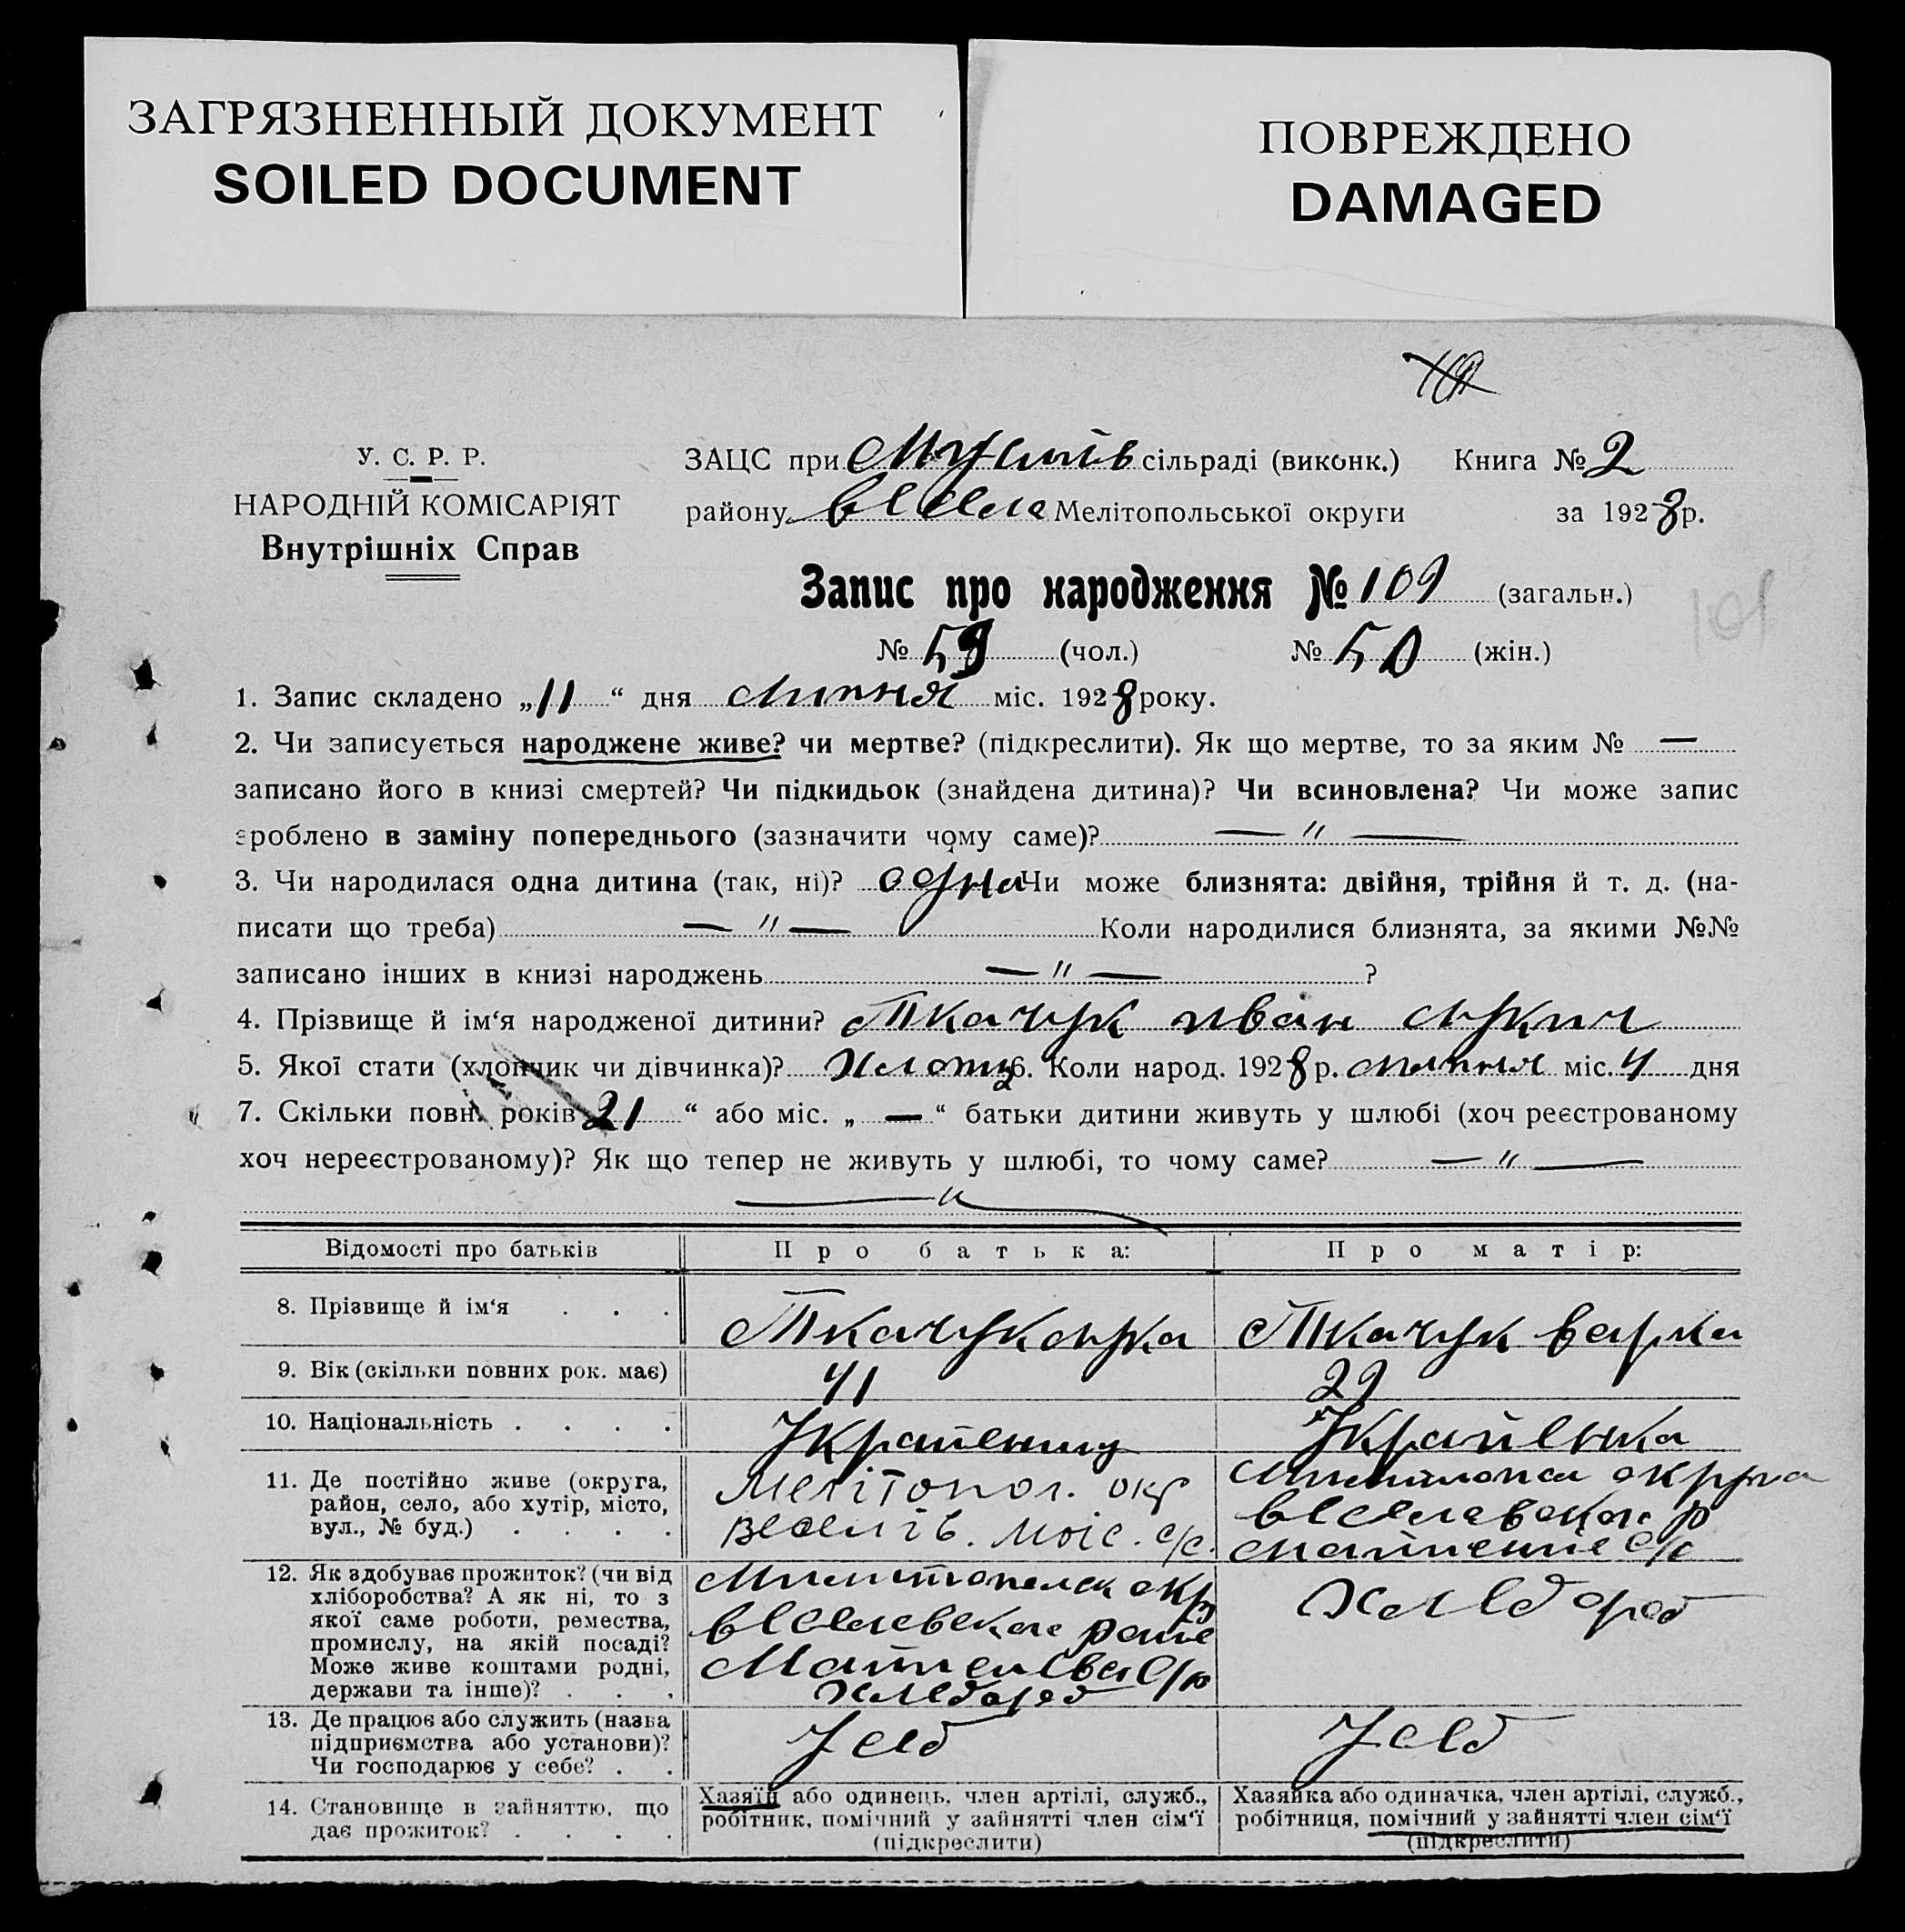 ЗАГРЯЗНЕННЫЙ ДОКУМЕНТ
SOILED DOCUMENT
ПОВРЕЖДЕНО
DAMAGED
У. С. Р. Р.
НАРОДНІЙ КОМІСАРІЯТ
Внутрішніх Справ
ЗАЦС при сільраді (виконк.) Книга № 2
району Весела Мелітопольської округи за 1928 р.
Запис про народження № 109 (загальн.)
№ 59 (чол.) № 50 (жін.)
1. Запис складено „11“ дня Липня міс. 1928 року.
2. Чи записується народжене живе? чи мертве? (підкреслити). Як що мертве, то за яким № —
записано його в книзі смертей? Чи підкидьок (знайдена дитина)? Чи всиновлена? Чи може запис
зроблено в заміну попереднього (зазначити чому саме)? — " —
3. Чи народилася одна дитина (так, ні)? одна Чи може близнята: двійня, трійня й т. д. (на-
писати що треба) — " — Коли народилися близнята, за якими №№
записано інших в книзі народжень — " — ?
4. Прізвище й ім‘я народженої дитини? Ткачук иван
5. Якої стати (хлопчик чи дівчинка)? Хлопц 6. Коли народ. 1928 р. липня міс. 4 дня
7. Скільки повн. років 21 “ або міс. „ — “ батьки дитини живуть у шлюбі (хоч реєстрованому
хоч нереєстрованому)? Як що тепер не живуть у шлюбі, то чому саме? — " —
— " —
Відомості про батьків Про батька: Про матір:
8. Прізвище й ім‘я . . . Ткачук лука Ткачук варка
9. Вік (скільки повних рок. має) 41 29
10. Національність . . . . Українец Українка
11. Де постійно живе (округа,
район, село, або хутір, місто,
вул., № буд.) . . . .
Мелітопол. окр
Веселів. с/с.
округа
с/с
12. Як здобуває прожиток? (чи від
хліборобства? А як ні, то з
якої саме роботи, ремества,
промислу, на якій посаді?
Може живе коштами родні,
держави та інше)? . . .
окр
с/р
хлебороб
хлебороб
13. Де працює або служить (назва
підприємства або установи)?
Чи господарює у себе? . .
У себ
У себ
14. Становище в зайняттю, що
дає прожиток? . . . .
Хазяїн або одинець, член артілі, служб.,
робітник, помічний у зайнятті член сім‘ї
(підкреслити)
Хазяйка або одиначка, член артілі, служб.,
робітниця, помічний у зайнятті член сім‘ї
(підкреслити)